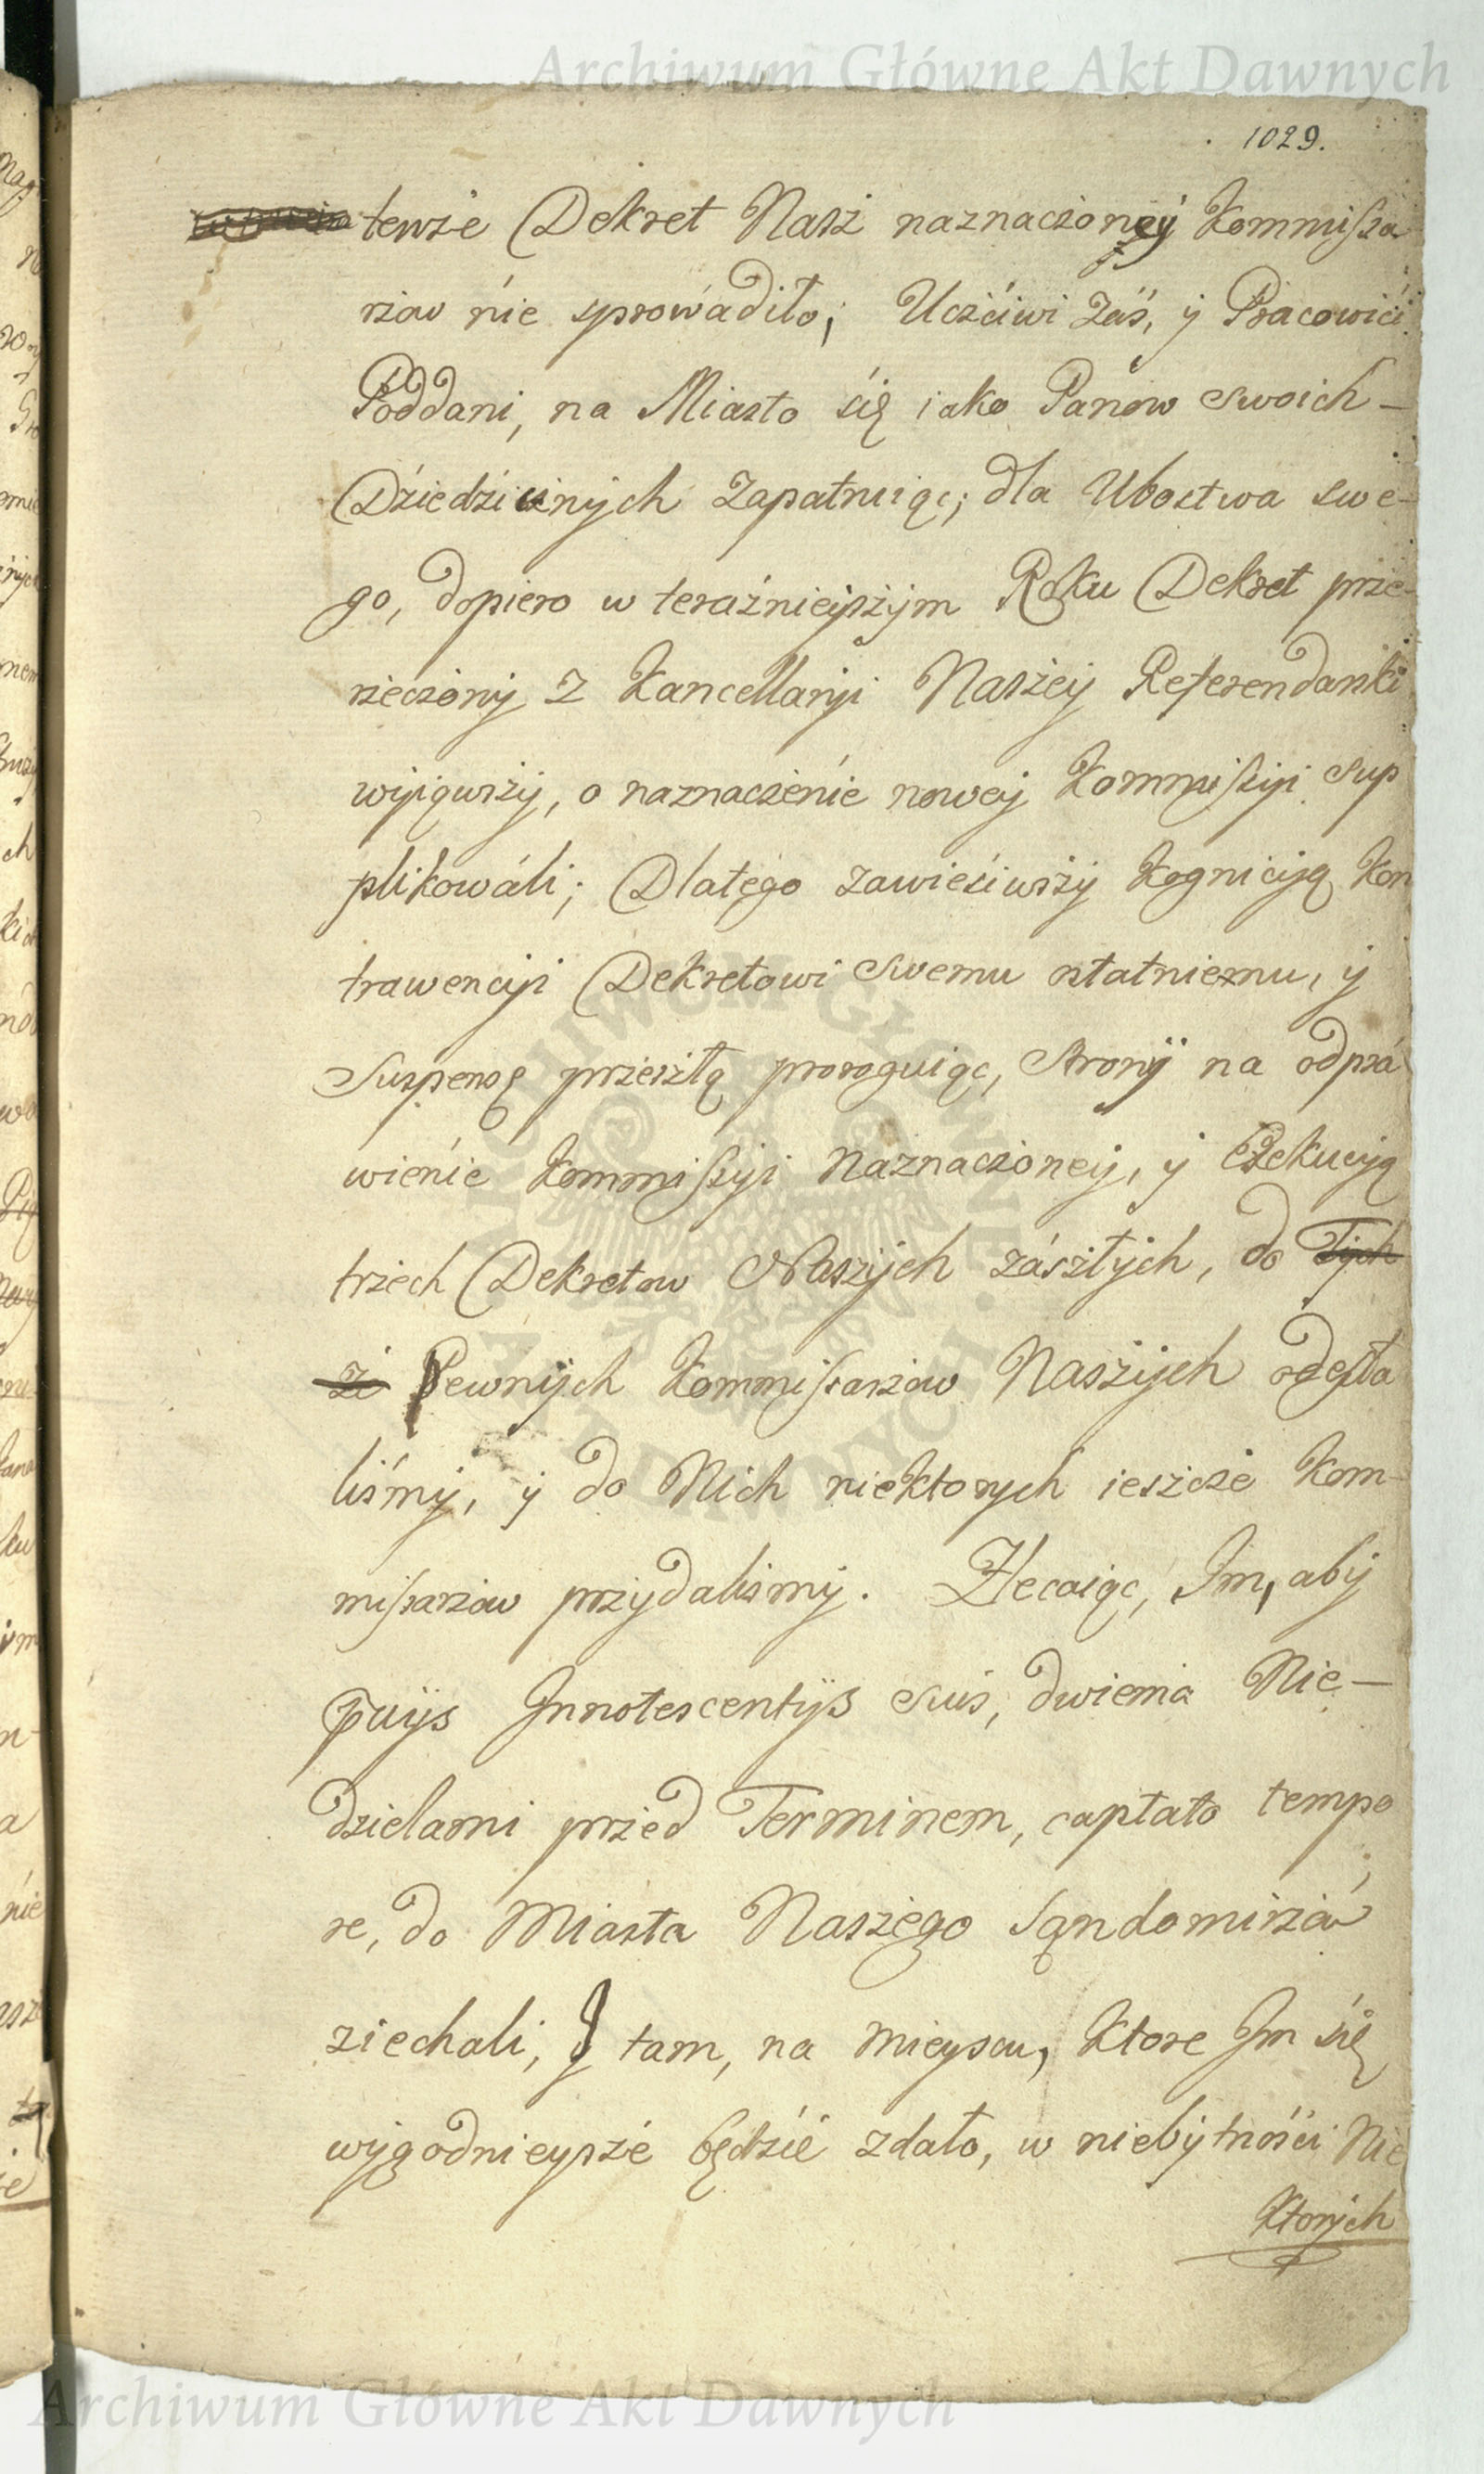 Archiwum Główne Akt Dawnych
1029.
tenże Dekret Nasz naznaczoney Kommissa
rzow nie sprowadiło; Uczciwi zaś, y Pracowici
Poddani, na Miasto się iako Panow swoich –
Dziedzicnych zapatruiąc; dla Ubostwa swe-
go, dopiero w teraźnieyszym Roku Dekret prze-
rzeczony z Kancellaryi Naszey Referendarski
wyiąwszy, o naznaczenie nowey Kommissyi sup
plikowali; Dlatego zawiesiwszy Kognicyą Kon
trawencyi Dekretowi swemu ostatniemu, y
Suspensę przeszłą proroguiąc, Strony na odpra
wienie Kommissyi Naznaczoney, y Exekucyą
trzech Dekretow Naszych zaszłych, do Tych
że Pewnych Kommissarzow Naszych odesła
liśmy, y do Nich niektorych ieszcze Kom-
missarzow przydaliśmy. Zlecaiąc, Im, aby
pvijs Innotescentijs suis, dwiema Nie –
dzielami przed Terminem, captato tempo
re, do Miasta Naszego Sąndomirza
ziechali, y tam, na mieyscu, Ktore Im się
wygodnieysze będzie zdało, w niebytności Nie
Ktorych
Archiwum Główne Akt Dawnych